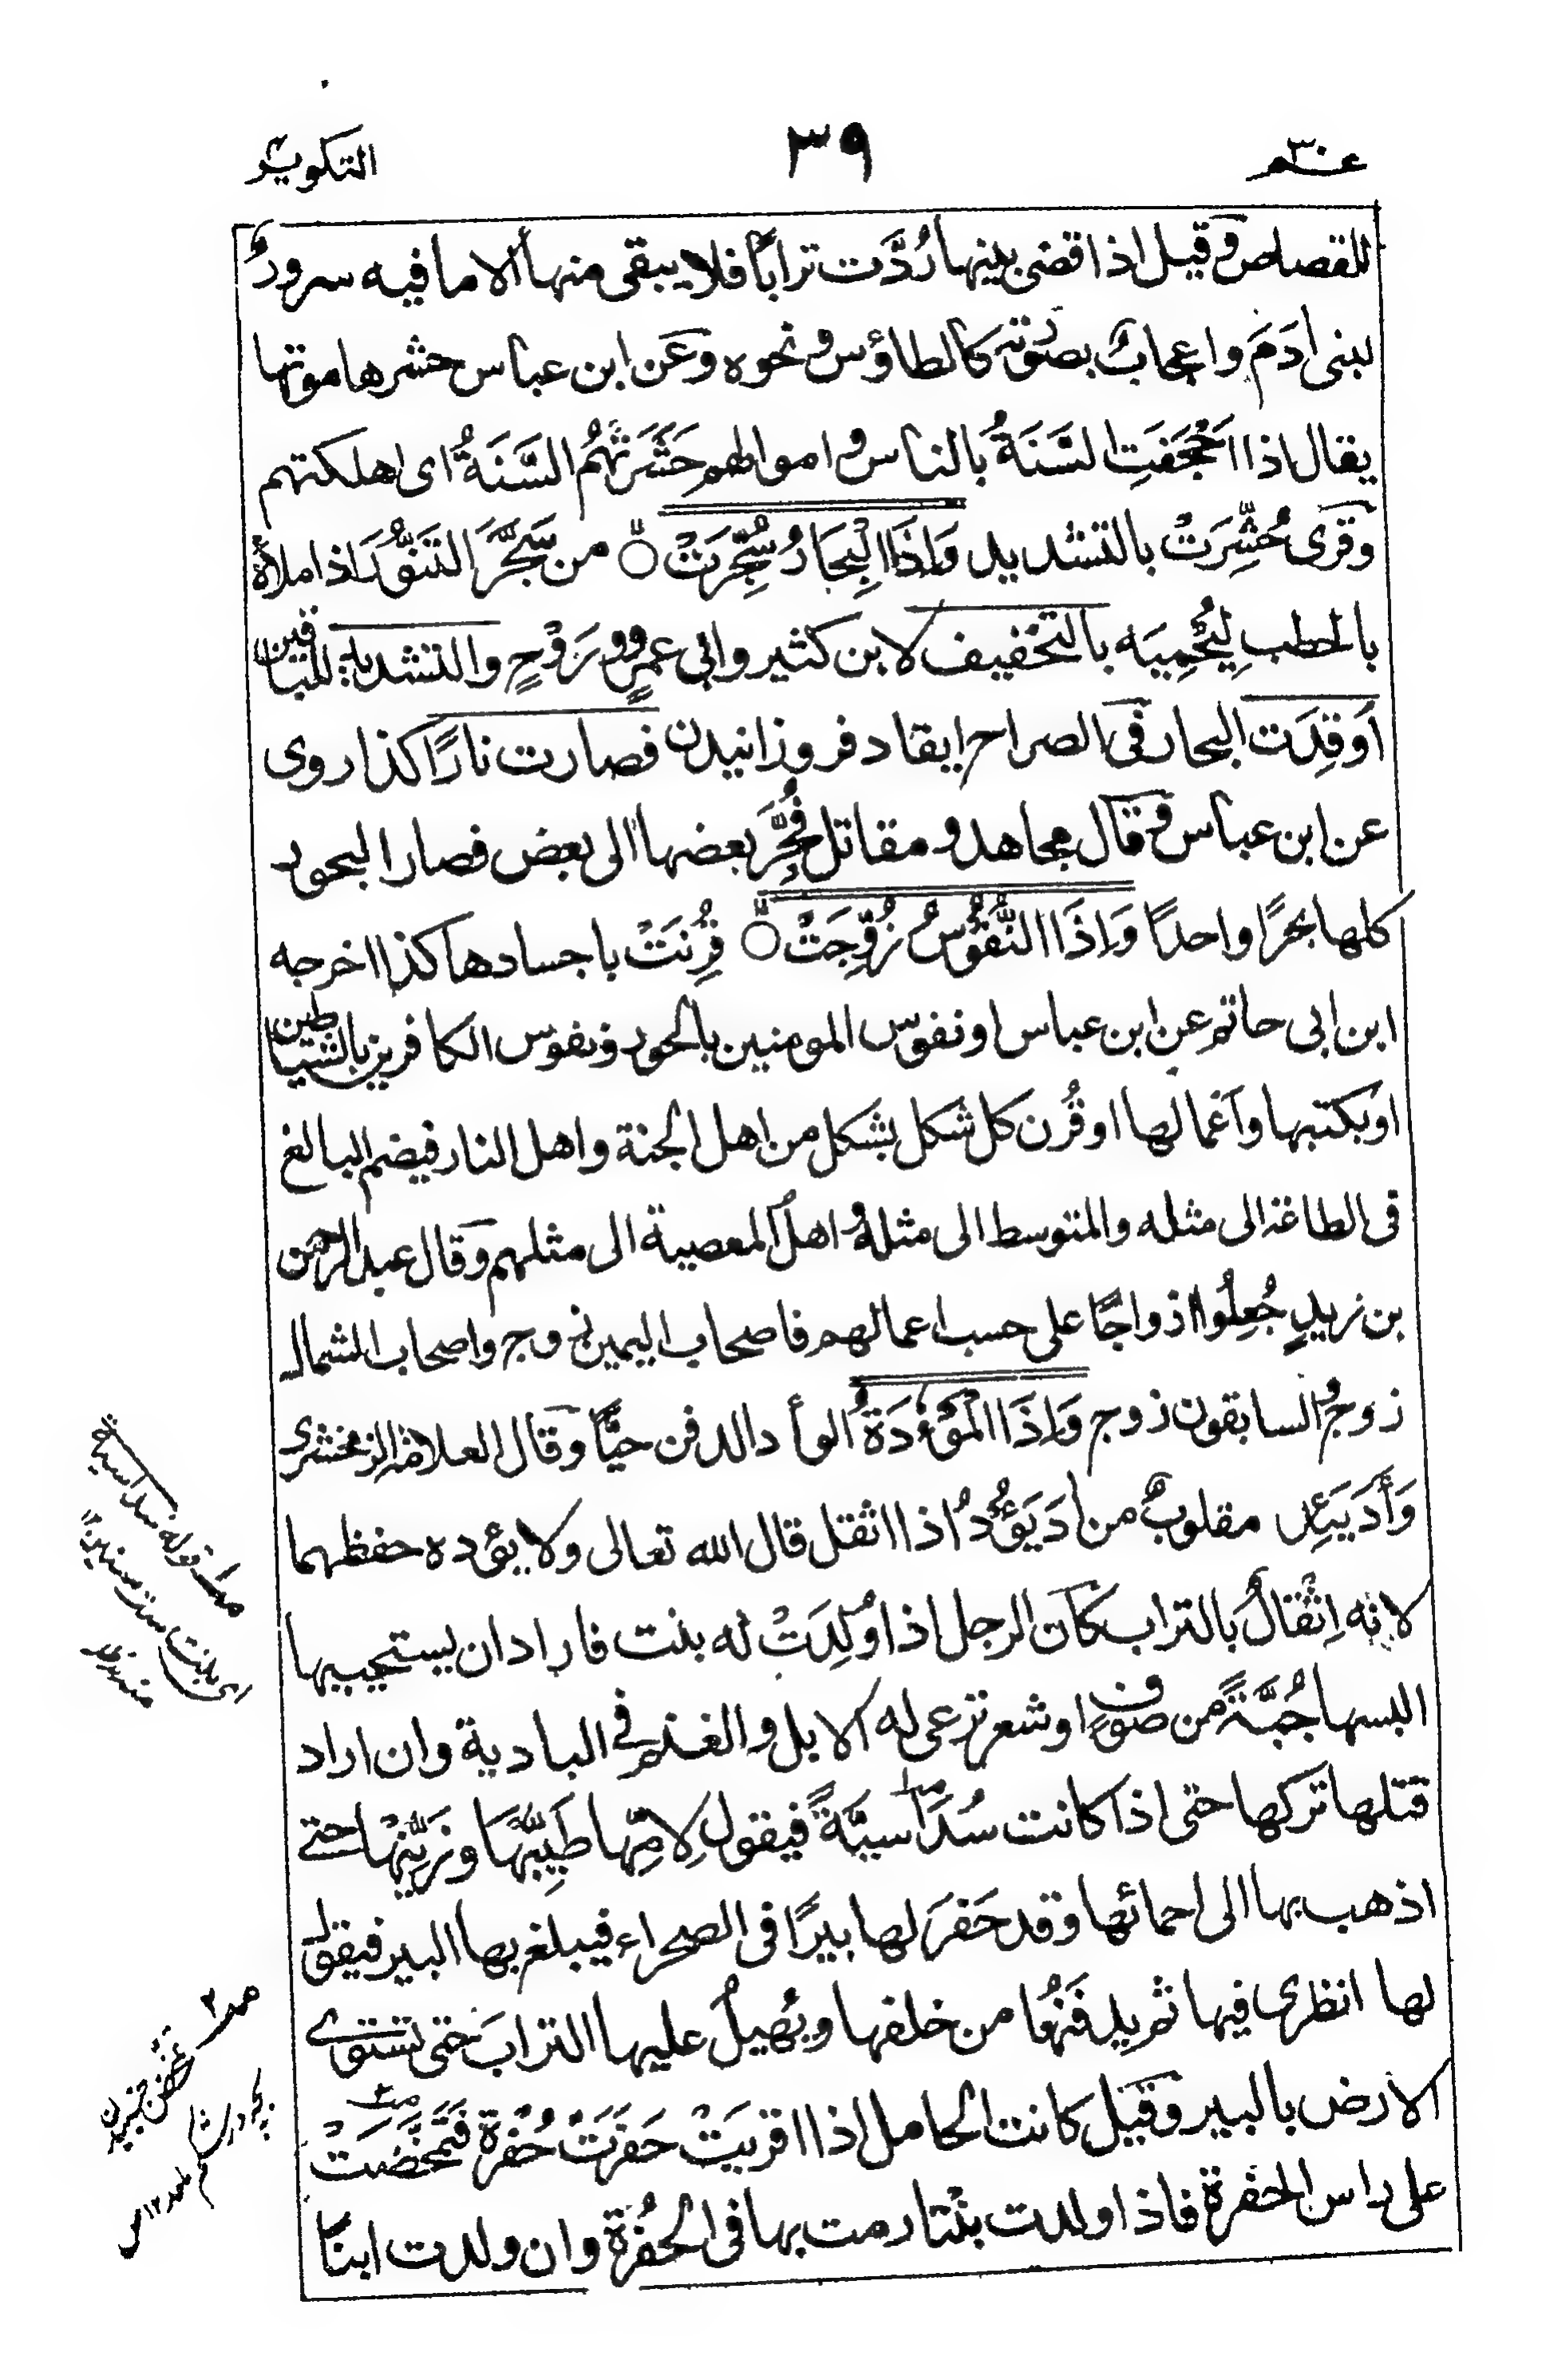 عم ٣٠
٣٩
التكوير
للقصاص وقيل اذا قضى بينها رُدَّت ترابًا فلا يبقى منها الا ما فيه سرورٌ
لبنى ادَمَ واعجابٌ بصُوَته كالطاؤس ونحوه وعَن ابن عباس حشرها موتها
يقال اذا اَجْحَفَتِ السَّنَةُ بالناس و اموالهم حَشَرَتْهُمُ السَّنَةُ اى اهلكتهم
وقرى حُشِّرَتْ بالتشديد وَاِذَا الْبِحَارُ سُجِّرَتْ من سَجَّرَ التَنُّوْرَ اذا ملأهُ
بالحطبِ لِيُحْمِيَه بالتخفيف لابن كثير وابى عمرٍو ورَوْحٍ والتشديد للباقين
اُوقِدَت البحار فى الصراح ايقاد فروزانيدن فصارت نارًا كذا روى
عن ابن عباس وقال مجاهد و مقاتل فُجِّرَ بعضها الى بعض فصار البحور
كلها بحرًا واحدًا وَاِذَا النُّفُوْسُ زُوِّجَتْ قُرِنَتْ باجسادها كذا اخرجه
ابن ابى حاتم عن ابن عباس او نفوس المومنين بالحور ونفوس الكافرين بالشياطين
اوبكتبها واَعمالها او قُرن كل شكل بشكل من اهل الجنة واهل النار فيضم البالغ
فى الطاعة الى مثله والمتوسط الى مثله و اهلُ المعصية الى مثلهم وقال عبد الرحمن
بن زيدٍ جُعِلُوا ازواجًا على حسب اعمالهم فاصحاب اليمين زوج واصحاب الشمال
زوج و السابقون زوج وَاِذَا الْمَوْءٗدَةُ الوأد الدفن حيًّا وقال العلامة الزمخشرى
وَأَدَ يَئِد مقلوبٌ من اٰدَ يَؤُدُ اذا اثقل قال الله تعالى ولا يؤده حفظهما
لانه اِثْقالٌ بالتراب كان الرجل اذا وُلِدَتْ له بنت فاراد ان يستحييها
البسها جُبَّةً من صوفٍ او شعر ترعى له الابل والغنم فى البادية وان اراد
قتلها تركها حتى اذا كانت سُدَاسيَّةً فيقول لاِمِّها طَيِّبِيْهَا وزَيِّنِيْهَا حتى
اذهب بها الى احمائها وقد حَفَرَ لها بيرًا فى الصحراء فيبلغ بها البير فيقول
لها انظرى فيها ثم يدفَعُها من خلفها ويُهيلُ عليها الترابَ حتى تستوى
الارض بالبير وقيل كانت الحامل اذا اقربَتْ حَفَرَتْ حُفْرَة فَتَمَخَّضَتْ
على راس الحفرة فاذا ولدت بنْتا رمت بها فى الحُفْرَة وان ولدت ابنًا
قوله سداسية
اى بلغت ست سنين